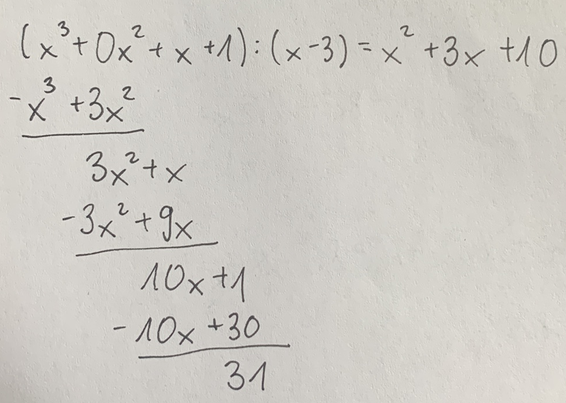 (x³+0x²+x+1):(x-3)=x²+3x+10
-x³+3x²
3x²+x
-3x²+9x
10x+1
-10x+30
31